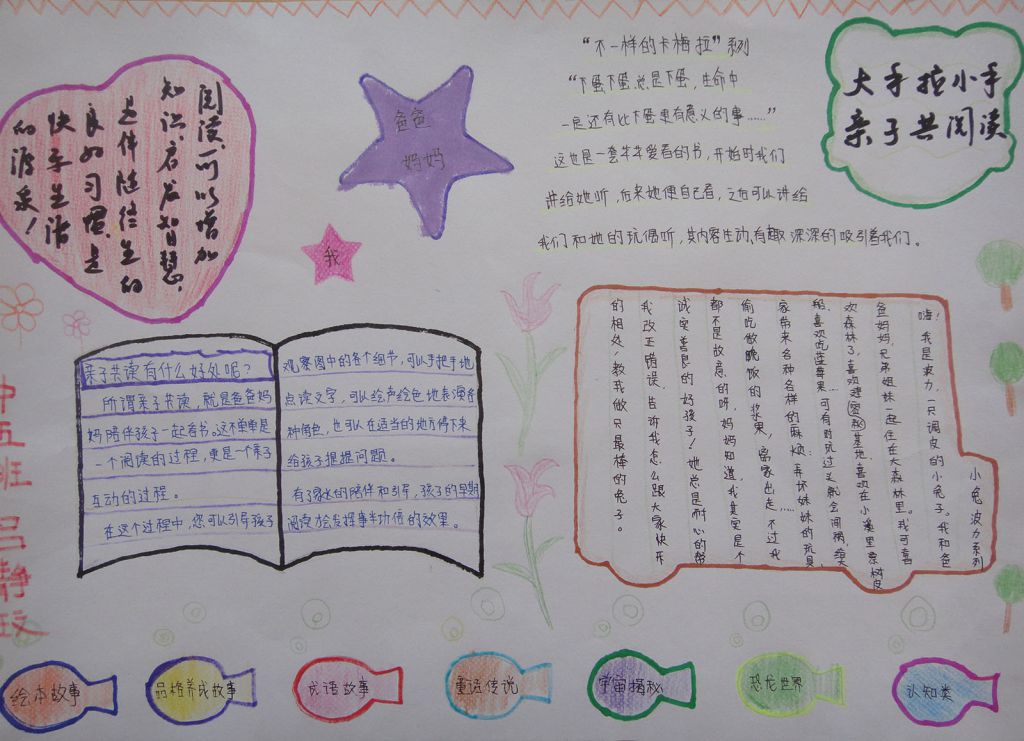 大手拉小手
亲子共阅读
阅读,可以增加
知识,启发智慧,
是伴随终生的
良好习惯,是
快乐生活
的源泉!
爸爸
妈妈
我
“不一样的卡梅拉”系列
“下蛋下蛋总是下蛋,生命中
一定还有比下蛋更有意义的事……”
这也是一套丰丰爱看的书,开始时我们
讲给她听,后来她便自己看,之后可以讲给
我们和她的玩偶听,其内容生动,有趣深深的吸引着我们。
亲子共读有什么好处呢?
所谓亲子共读,就是爸爸妈
妈陪伴孩子一起看书。这不单单是
一个阅读的过程,更是一个亲子
互动的过程。
在这个过程中,您可以引导孩子
观察图中的各个细节,可以手把手地
点读文字,可以绘声绘色地表演各
种角色,也可以在适当的地方停下来
给孩子提提问题。
有了家长的陪伴和引导,孩子的早期
阅读才会发挥事半功倍的效果。
小兔波力系列
嗨!我是波力,一只调皮的小兔子。我和爸
爸妈妈,兄弟姐妹一起住在大森林里。我可喜
欢森林了,喜欢建密秘基地,喜欢在小溪里乘树皮
船,喜欢吃蓝莓果,可有时玩过头就会闯祸,给大
家带来各种各样的麻烦:弄坏妹妹的玩具,
偷吃做晚饭的浆果,离家出走……不过我
都不是故意的呀,妈妈知道,我其实是个
诚实善良的好孩子!她总是耐心的帮
我改正错误,告诉我怎么跟大家快乐
的相处,教我做只最棒的兔子。
中五班 吕静玟
绘本故事
品格养成故事
成语故事
童话传说
宇宙揭秘
恐龙世界
认知类